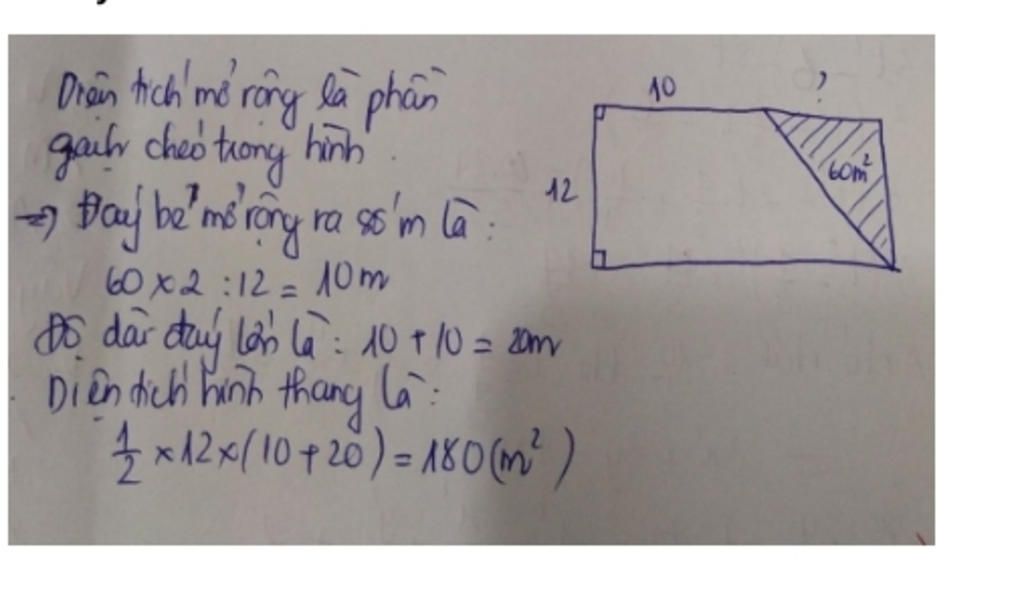 Diện tích mở rộng là phần
gạch chéo trong hình.
=> Đáy bé mở rộng ra số m là:
60 x 2 : 12 = 10m
Độ dài đáy lớn là: 10 + 10 = 20m
Diện tích hình thang là:
1/2 x 12 x (10 + 20) = 180 (m²)
10
?
12
60m²